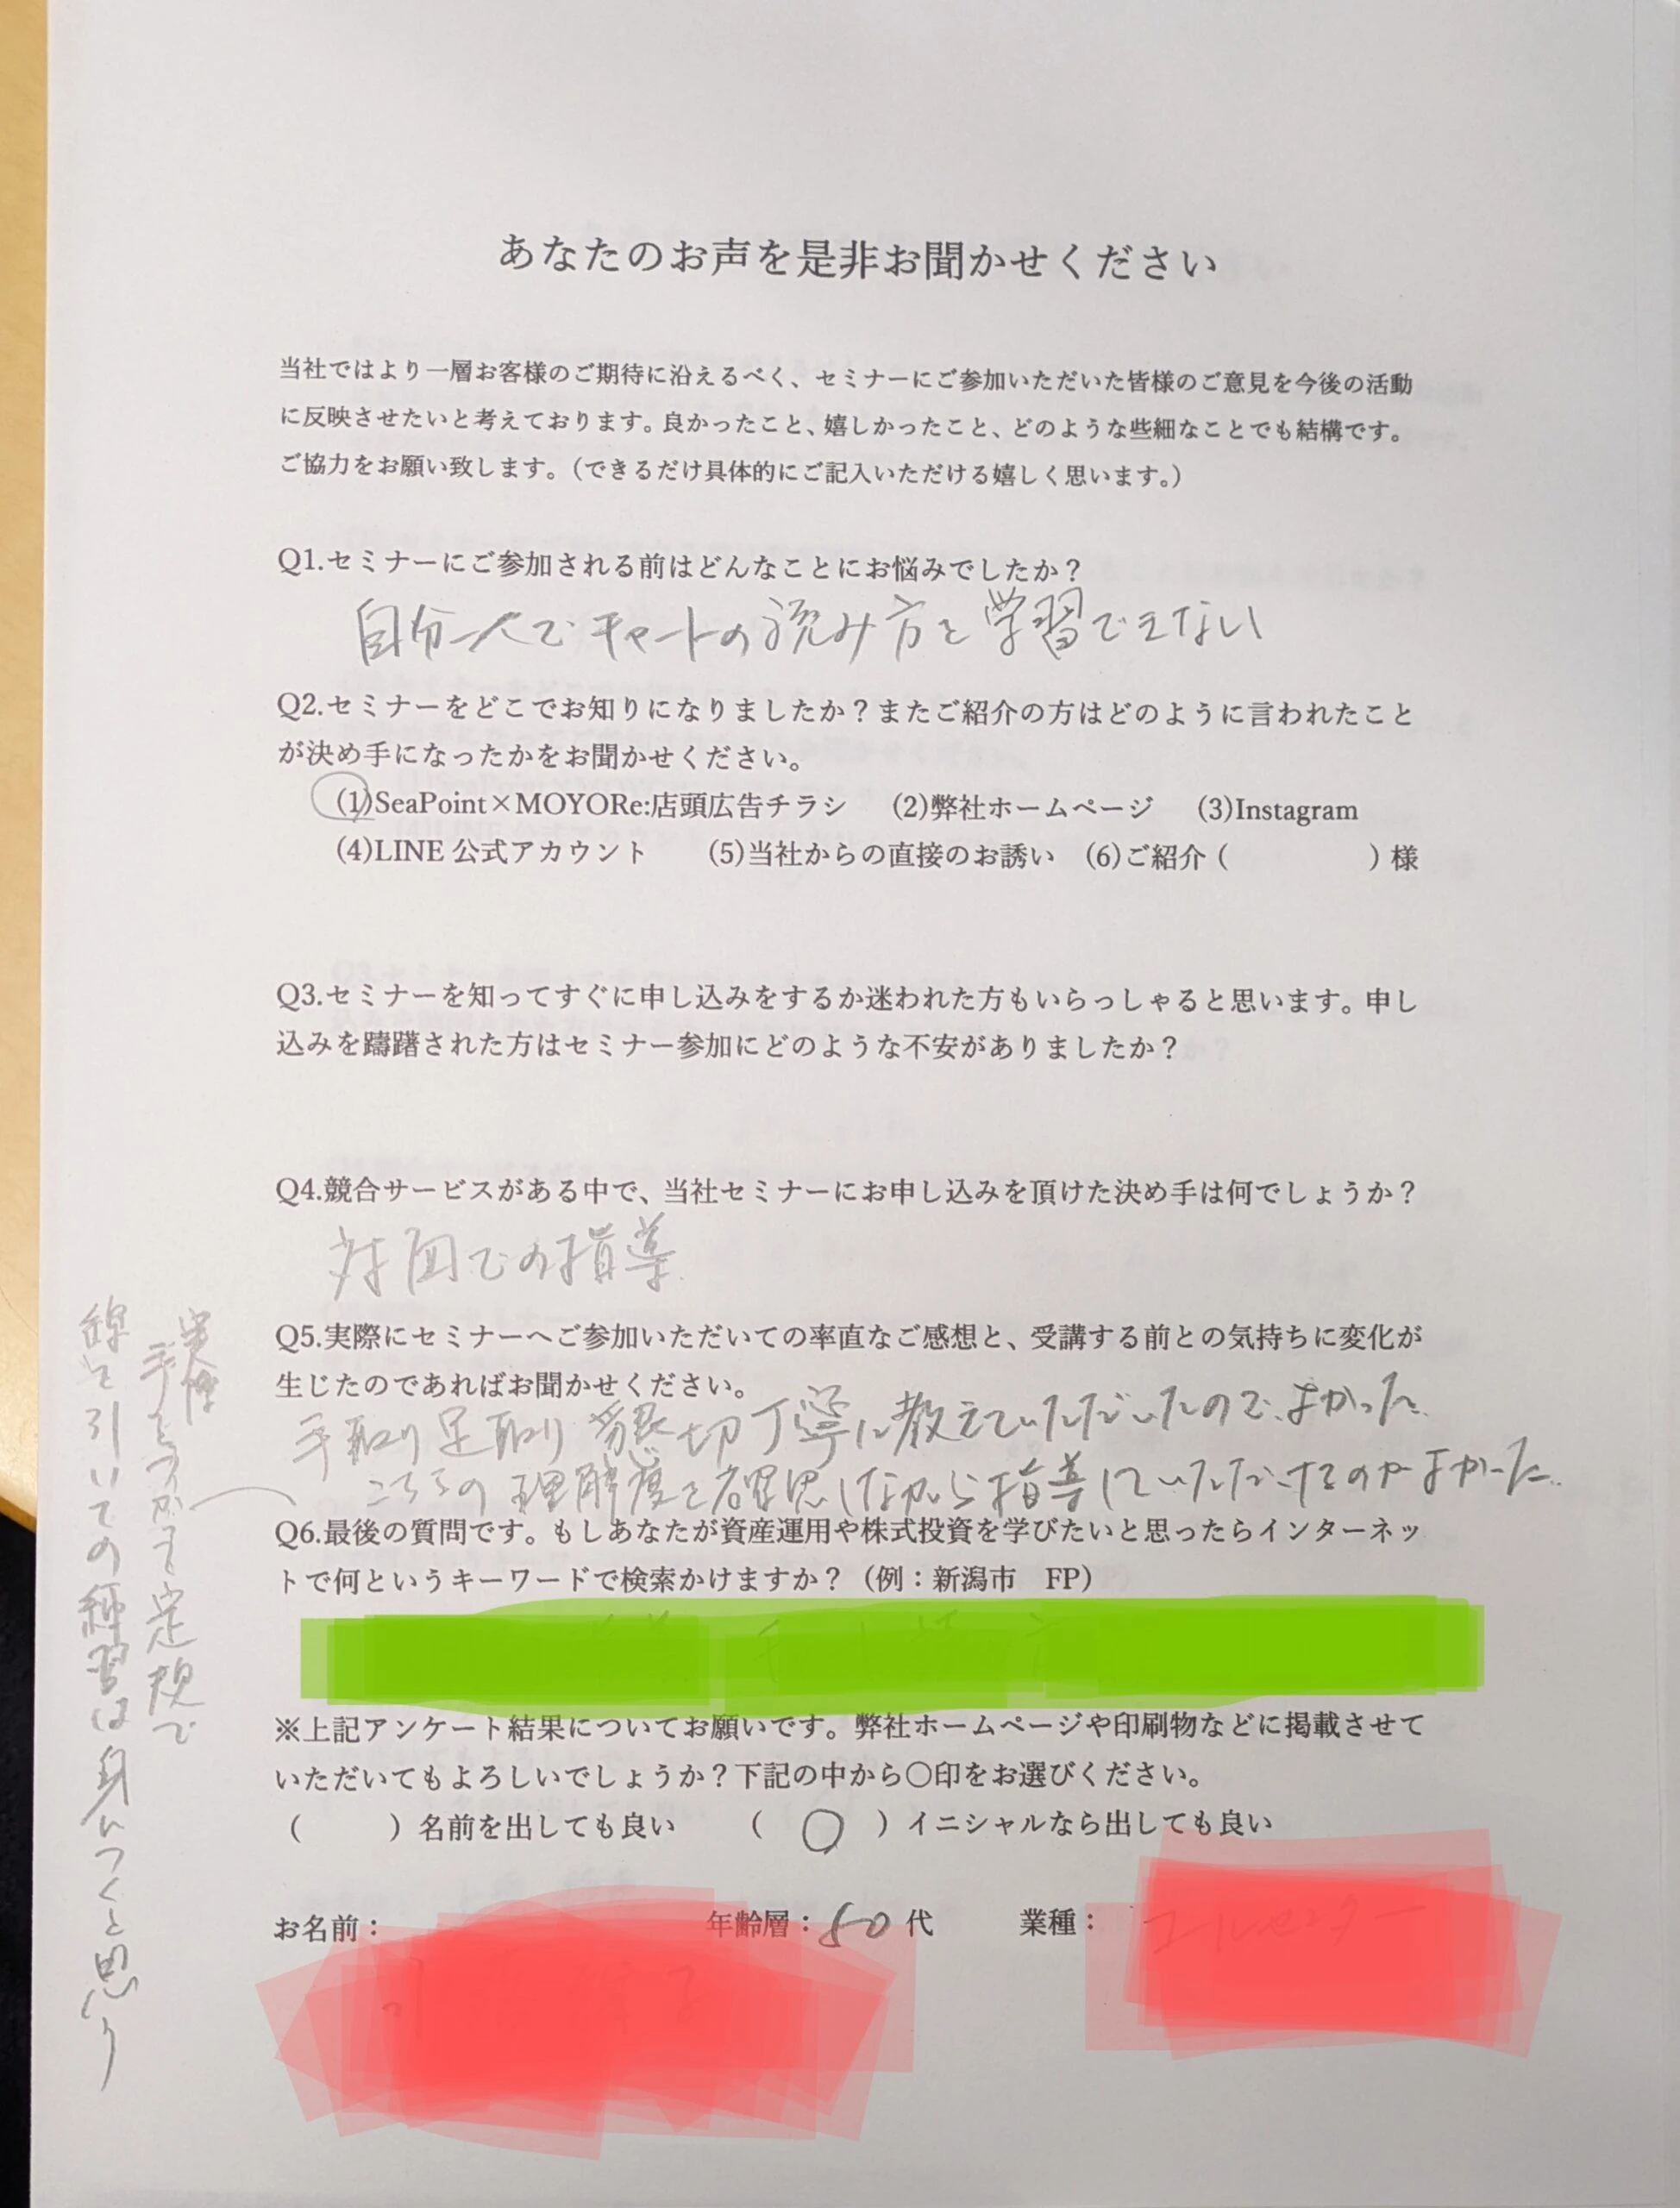 あなたのお声を是非お聞かせください
当社ではより一層お客様のご期待に沿えるべく、セミナーにご参加いただいた皆様のご意見を今後の活動
に反映させたいと考えております。良かったこと、嬉しかったこと、どのような些細なことでも結構です。
ご協力をお願い致します。（できるだけ具体的にご記入いただける嬉しく思います。）
Q1.セミナーにご参加される前はどんなことにお悩みでしたか？
自分一人でチャートの読み方を学習できない
Q2.セミナーをどこでお知りになりましたか？またご紹介の方はどのように言われたこと
が決め手になったかをお聞かせください。
(1)SeaPoint×MOYORe:店頭広告チラシ (2)弊社ホームページ (3)Instagram
(4)LINE 公式アカウント (5)当社からの直接のお誘い (6)ご紹介（ ）様
Q3.セミナーを知ってすぐに申し込みをするか迷われた方もいらっしゃると思います。申し
込みを躊躇された方はセミナー参加にどのような不安がありましたか？
Q4.競合サービスがある中で、当社セミナーにお申し込みを頂けた決め手は何でしょうか？
対面での指導
Q5.実際にセミナーへご参加いただいての率直なご感想と、受講する前との気持ちに変化が
生じたのであればお聞かせください。
手取り足取り懇切丁寧に教えていただいたので、よかった
こちらの理解度を確認しながら指導していただけるのがよかった。
実際
手をうごかして定規で
線を引いての練習は身につくと思う
Q6.最後の質問です。もしあなたが資産運用や株式投資を学びたいと思ったらインターネッ
トで何というキーワードで検索かけますか？（例：新潟市 FP）
※上記アンケート結果についてお願いです。弊社ホームページや印刷物などに掲載させて
いただいてもよろしいでしょうか？下記の中から〇印をお選びください。
（ ）名前を出しても良い （ ○ ）イニシャルなら出しても良い
お名前： 年齢層：50代 業種：